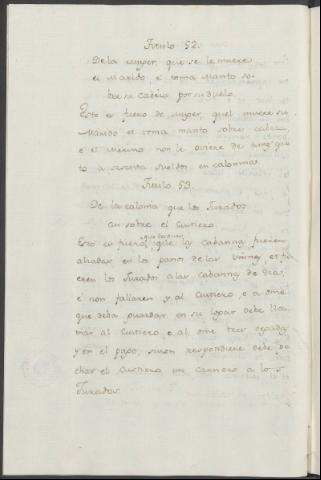 Titulo 52.
De la muger, que se le muere
el Marido, e toma Manto so-
bre se cabeza por su duelo.
Esto es fuero de muger, quel muere su
Marido et toma manto sobre cabeza,
e el Merino non le oviere de
to a sesenta sueldos en calonnas.
Titulo 53.
De la calonia que los Jurados
an sobre el Custiero.
Esto es fuero, que las cabannas
en los panos de las
los Jurados a las cabannas de dias,
e non fallaren y, al Custiero, e a ome
que deba guardar en su logar debe lla-
mar al Custiero, e al ome tres vegadas
y en el pago, sinon respondiere debe pe-
char el Custiero un carnero a los
Jurados.